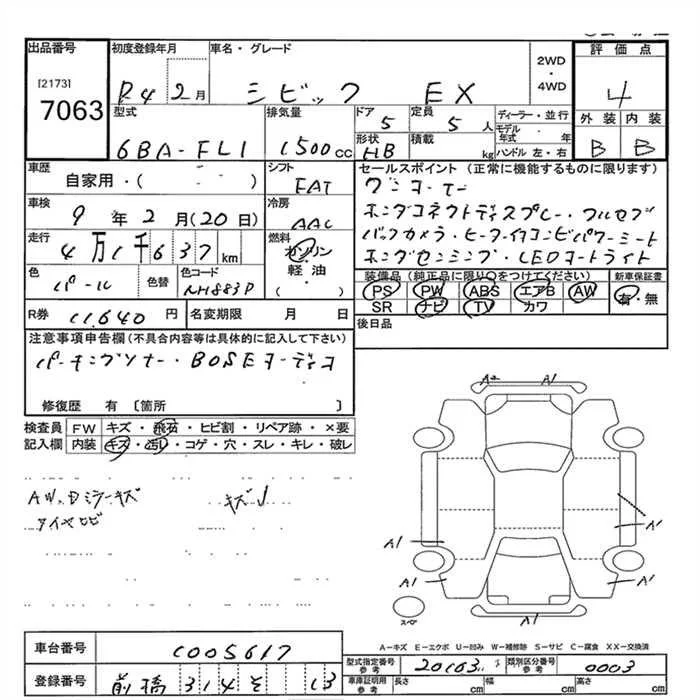 出品番号
[2173]
7063
初度登録年月
R4 2月
車名・グレード
シビック EX
2WD
・
4WD
評価点
4
外装 内装
B B
型式
6BA-FL1
排気量
1500cc
ドア
5
定員
5人
形状
HB
積載
kg
ディーラー・並行
モデル年式 年
ハンドル 左・右
車歴
自家用・( )
シフト
FAT
セールスポイント (正常に機能するものに限ります)
ワンオーナー
ホンダコネクトディスプレー・フルセグ
バックカメラ・ヒーター付コンビパワーシート
ホンダセンシング・LEDオートライト
車検
9年2月(20日)
冷房
AAC
走行
4万1千637km
燃料
ガソリン
・
軽油
( )
色
パール
色替
色コード
NH883P
装備品 (純正品に限り○をつけてください)
新車保証書
PS PW ABS エアB AW
有・無
SR ナビ TV カワ
R券
11,640円
名変期限 月 日
後日品
注意事項申告欄(不具合内容等は具体的に記入して下さい)
パーキングソナー・BOSEオーディオ
修復歴 有 〔箇所 〕
検査員
記入欄
FW キズ・飛石・ヒビ割・リペア跡・×要
内装 キズ・汚レ・コゲ・穴・スレ・キレ・破レ
AW、Dミラーキズ
キズ
A2 A1
A1
A1
A1 A1
A1
スペア
A－キズ E－エクボ U－凹み W－補修跡 S－サビ C－腐食 XX－交換済
車台番号
C005617
登録番号
前橋 314 そ 13
型式指定番号
参考
20163
類別区分番号
参考
0003
車庫証明用
参考
長さ cm
幅 cm
高さ cm